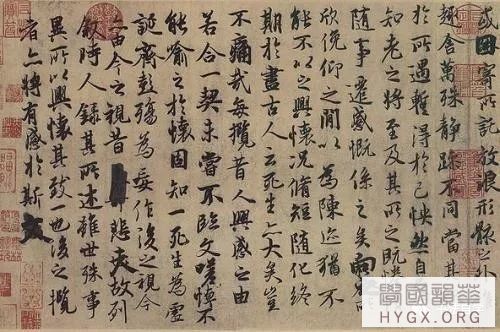 或因寄所託放浪形骸之外
趣舍萬殊靜躁不同當其
於所遇蹔得於己怏然自
知老之將至及其所之既惓
隨事遷感慨係之矣向之所
欣俛仰之間以為陳迹猶不
能不以之興懷況脩短隨化終
期於盡古人云死生亦大矣豈
不痛哉每攬昔人興感之由
若合一契未嘗不臨文嗟悼不
能喻之於懷固知一死生為虛
誕齊彭殤為妄作後之視今
亦由今之視昔悲夫故列
敘時人錄其所述雖世殊事
異所以興懷其致一也後之攬
者亦將有感於斯文
學國韻華
HYGX.ORG